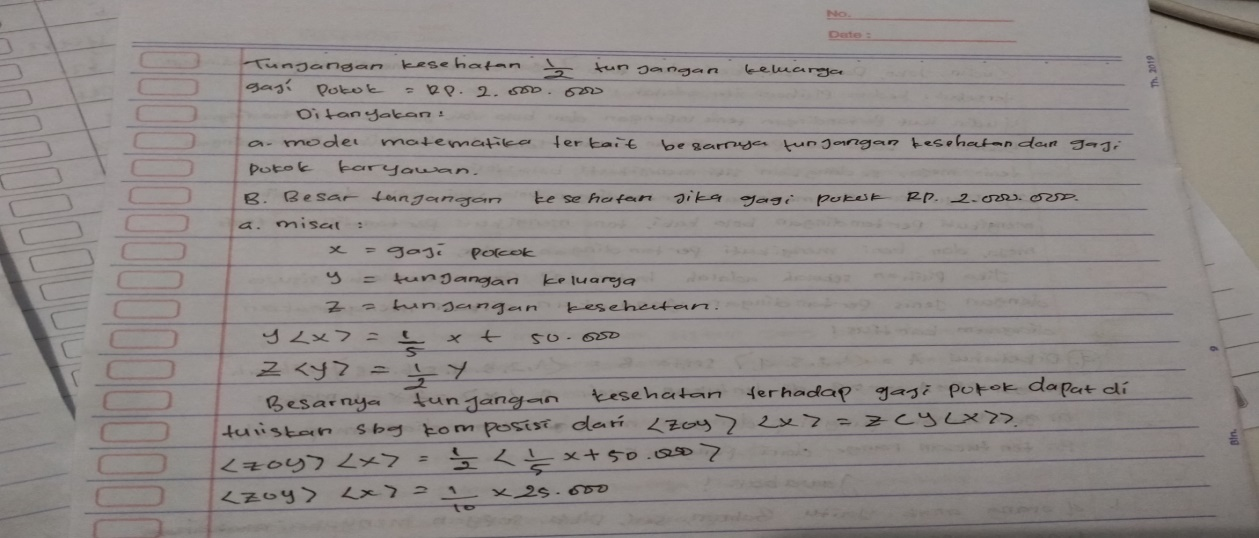 No.
Date :
Tunjangan kesehatan 1/2 tunjangan keluarga
gaji pokok = RP. 2.000.000
Ditanyakan :
a. model matematika terkait besarnya tunjangan kesehatan dan gaji
pokok karyawan.
B. Besar tunjangan kesehatan jika gaji pokok RP. 2.000.000.
a. misal :
x = gaji pokok
y = tunjangan keluarga
z = tunjangan kesehatan.
y <x> = 1/5 x + 50.000
z <y> = 1/2 y
Besarnya tunjangan kesehatan terhadap gaji pokok dapat di
tuliskan sbg komposisi dari <zoy> <x> = z<y<x>>.
<zoy> <x> = 1/2 < 1/5 x + 50.000 >
<zoy> <x> = 1/10 x 25.000